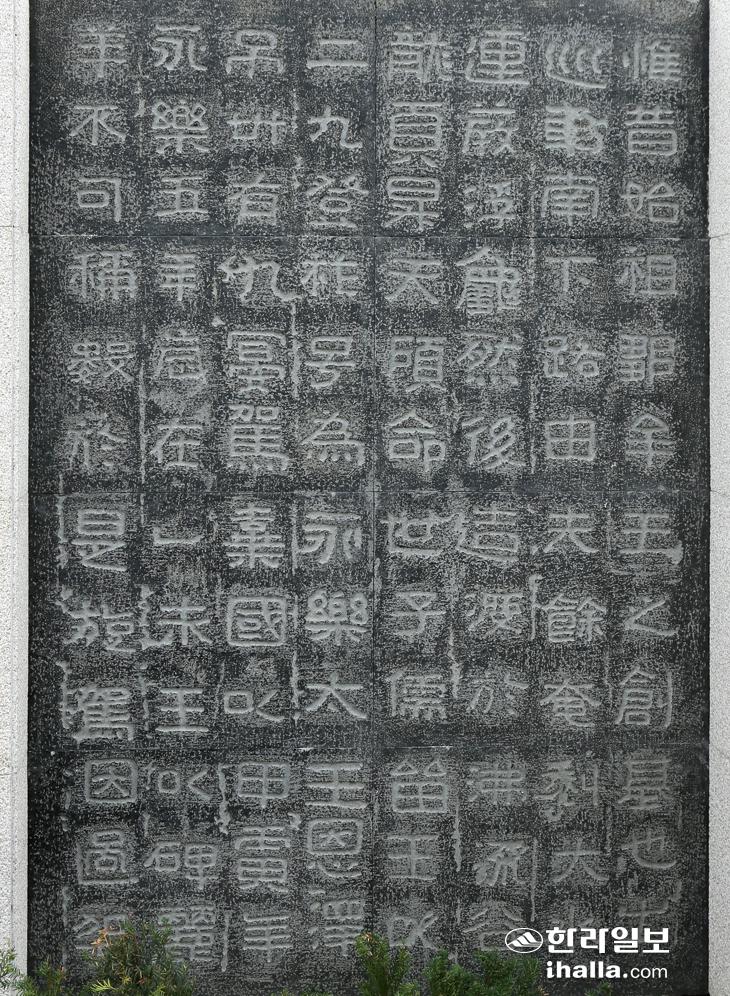 惟昔始祖鄒牟王之創基也出
巡車南下路由夫餘奄利大水
連葭浮龜然後造渡於沸流谷
龍頁昇天顧命世子儒留王以
二九登祚号為永樂太王恩澤
弔卅有九宴駕棄國以甲寅年
永樂五年歲在乙未王以碑麗
羊不可稱數於是旋駕因過襄
한라일보
ihalla.com